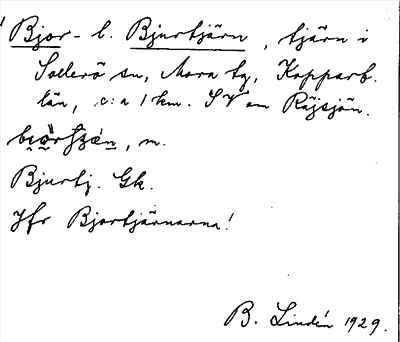 Bjor- l. Bjurtjärn, tjärn i
Sollerö sn, Mora tg, Kopparb.
län, c:a 1 km. SV om Räjsjön.
m.
Bjurtj. Gk.
Jfr Bjortjärnarna!
B. Lindén 1929.